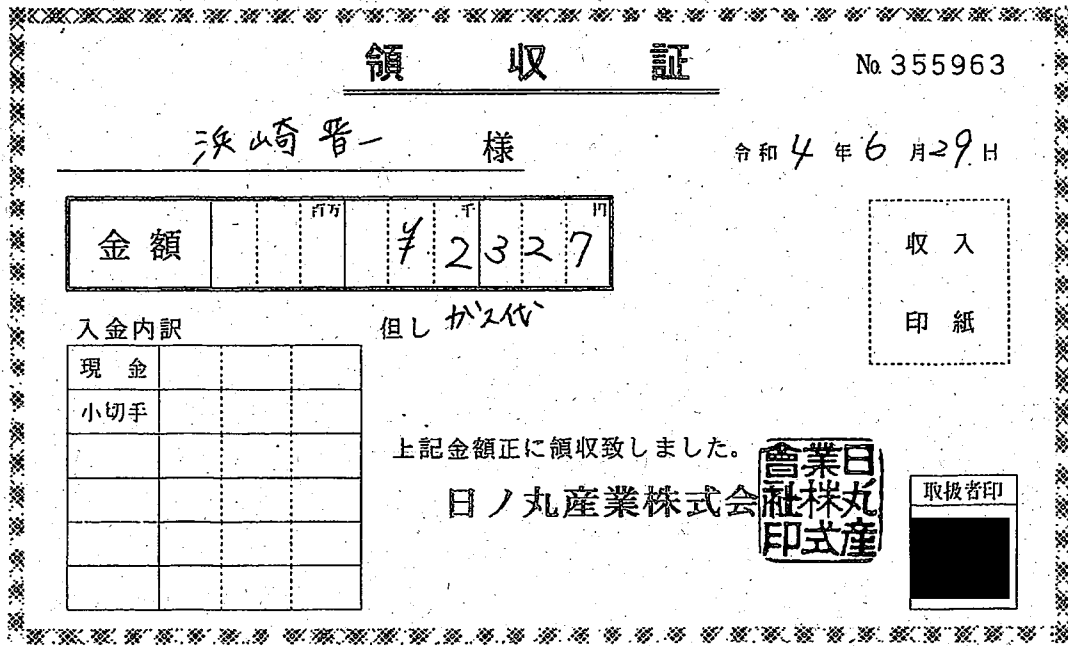 領収証
No. 355963
浜崎晋一 様
令和4年6月29日
金額 百万 千 円
¥2327
入金内訳
但し ガス代
現金
小切手
収入
印紙
上記金額正に領収致しました。
日ノ丸産業株式会
日丸産業株式會社印
取扱者印